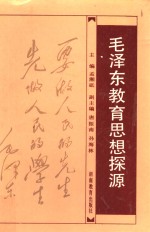 毛泽东教育思想探源
主编 孟湘砥 副主编 孙海林
湖南教育出版社
要做人民的先生
先做人民的學生
毛泽东